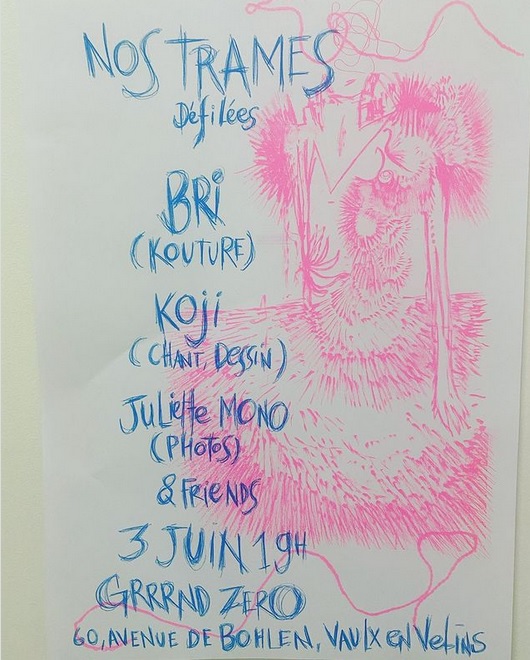 NOS TRAMES
Défilées
BRi
(KOUTURE)
KOji
(CHANT, DeSSiN)
JULiette MONO
(PHOTOS)
& FRiENDS
3 JUiN 19H
GRRRND ZERO
60, AVENUE DE BOHLEN, VAULX EN VeLiNS